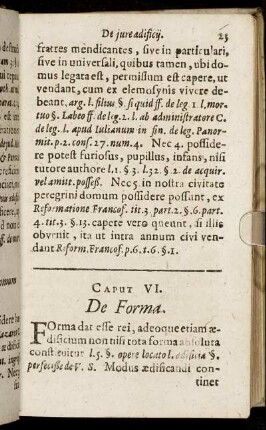 De jure adificij. 25
fratres mendicantes, sive in particulari,
sive in universali, quibus tamen, ubi do-
mus legata est, permissum est capere, ut
vendant, cum ex elemosynis vivere de-
beant. arg. l. filius §. si quid ff. de leg. 1 l. mor-
tuo §. Labeo ff. de leg. 2. l. ab administratore C.
de leg. l. apud Iulianum in fin. de leg. Panor-
mit. p. 2. cons. 27. num. 4. Nec 4. possidere
potest furiosus, pupillus, infans, nisi
tutore authore l. 1. §. 3. l. 32. §. 2. de acquir.
vel amitt. possess. Nec 5. in nostra civitate
peregrini domum possidere possunt, ex
Reformatione Francof. tit. 3. part. 2. §. 6. part.
4. tit. 3. §. 13. capere vero queunt, si illis
obvenit, ita ut intra annum civi ven-
dant Reform. Francof. p. 6. t. 6. §. 1.
CAPUT VI.
De Forma.
FOrma dat esse rei, adeoque etiam æ-
dificium non nisi tota forma absoluta
constituitur l. 5. §. opere locato l. ædificia §.
perfecisse de V. S. Modus ædificandi con-
tinet